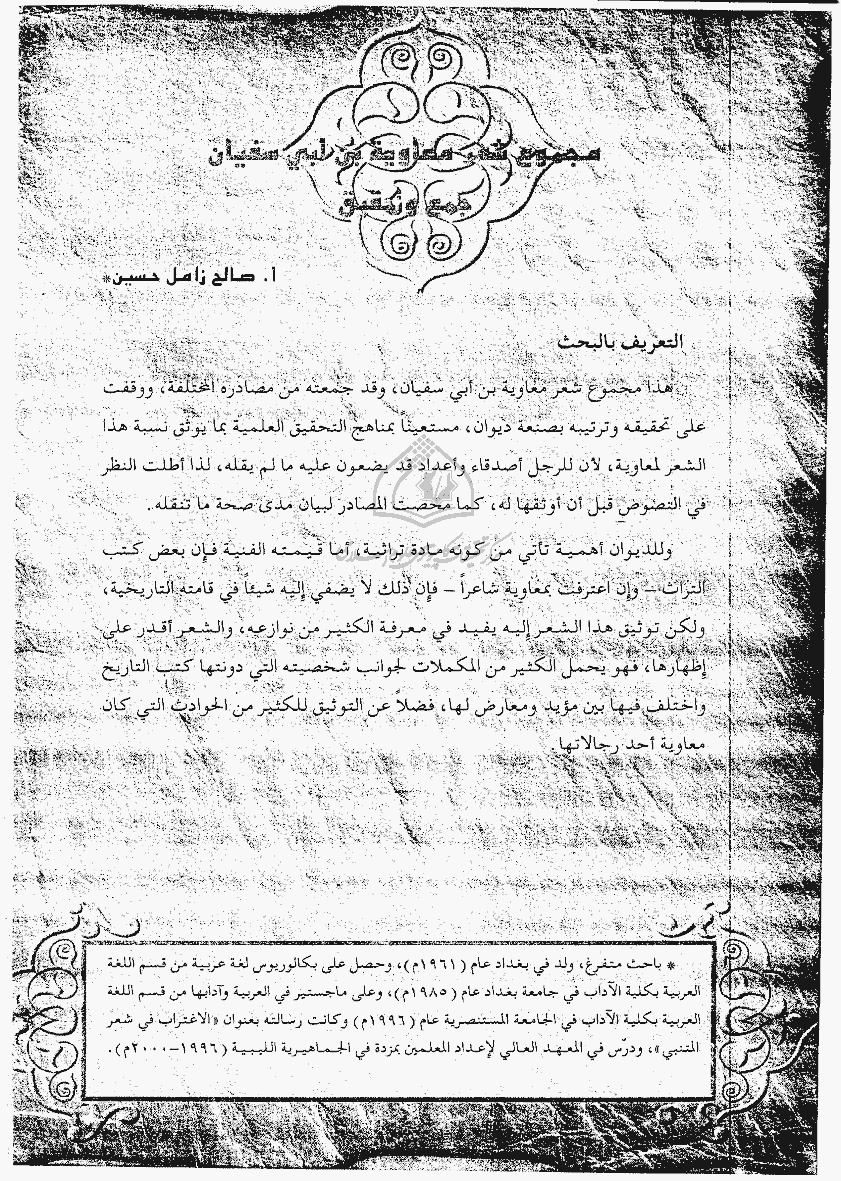 مجموع شعر معاوية بن أبي سفيان
جمع وتحقيق
أ. صالح زامل حسين*
التعريف بالبحث
هذا مجموع شعر معاوية بن أبي سفيان، وقد جمعته من مصادره المختلفة، ووقفت
على تحقيقه وترتيبه بصنعة ديوان، مستعينًا بمناهج التحقيق العلمية بما يوثق نسبة هذا
الشعر لمعاوية، لأن للرجل أصدقاء وأعداد قد يضعون عليه ما لم يقله، لذا أطلت النظر
في النصوص قبل أن أوثقها له، كما محصت المصادر لبيان مدى صحة ما تنقله.
وللديوان أهمية تأتي من كونه مادة تراثية، أما قيمته الفنية فإن بعض كتب
التراث – وإن اعترفت بمعاوية شاعراً – فإن ذلك لا يضفي إليه شيئاً في قامته التاريخية،
ولكن توثيق هذا الشعر إليه يفيد في معرفة الكثير من نوازعه، والشعر أقدر على
إظهارها، فهو يحمل الكثير من المكملات لجوانب شخصيته التي دونتها كتب التاريخ
واختلف فيها بين مؤيد ومعارض لها، فضلاً عن التوثيق للكثير من الحوادث التي كان
معاوية أحد رجالاتها.
* باحث متفرغ، ولد في بغداد عام (١٩٦١م)، وحصل على بكالوريوس لغة عربية من قسم اللغة
العربية بكلية الآداب في جامعة بغداد عام (١٩٨٥م)، وعلى ماجستير في العربية وآدابها من قسم اللغة
العربية بكلية الآداب في الجامعة المستنصرية عام (١٩٩٦م) وكانت رسالته بعنوان «الاغتراب في شعر
المتنبي»، ودرّس في المعهد العالي لإعداد المعلمين بمزدة في الجماهيرية الليبية (١٩٩٦-٢٠٠٠م).